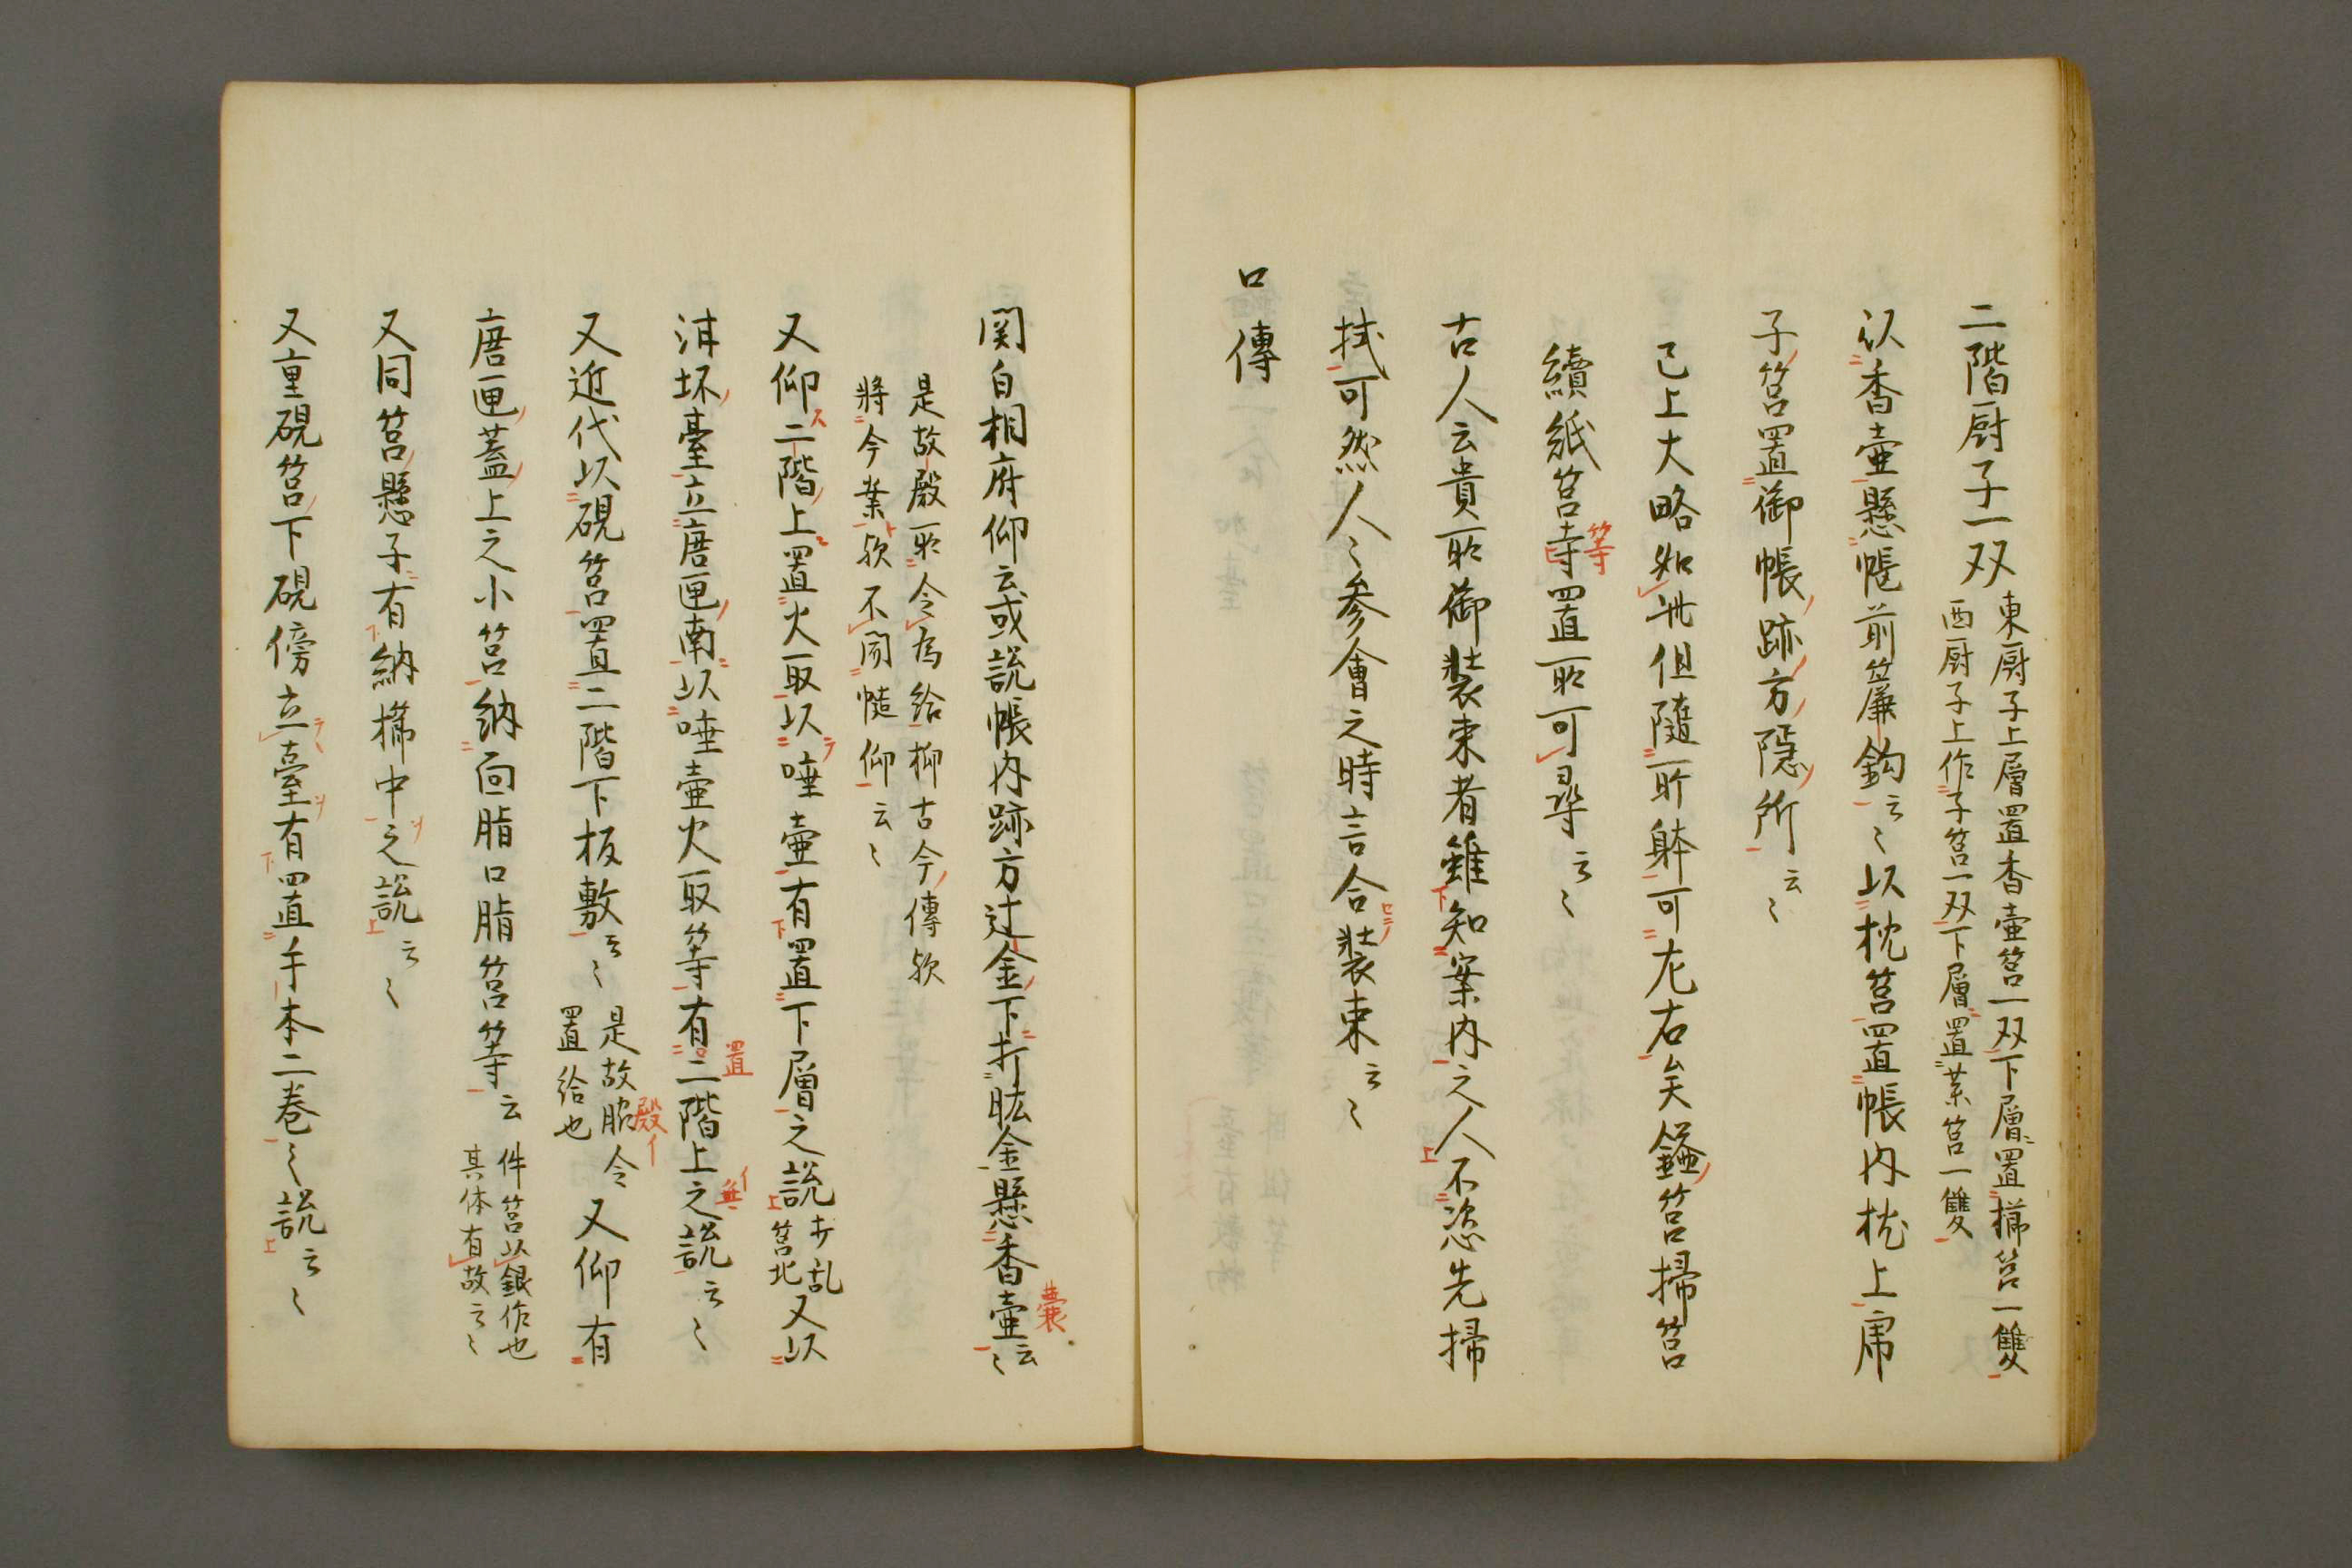 二階厨子一双
東厨子上層置香壷筥一双下層置掃筥一雙
西厨子上作子筥一双下層置菓筥一雙
以香壷懸帳前簾鈎云〻以枕筥置帳内枕上帯
子筥置御帳跡方隠所云〻
已上大略如此但随所躰可左右矣鎰筥掃筥
續紙筥寺置所可尋云〻
等
古人云貴所御装束者雖知案内之人不恣先掃
拭可然人〻参會之時言合装束云〻
口傳
関白相府仰云或説帳内跡方辻金下折肱金懸香壷云〻
嚢
是故殿所令為給抑古今傳欤
將今案欤不聞慥仰云〻
又仰二階上置火取以唾壷有置下層之説
打乱
筥北
又以
泔坏臺立唐匣南以唾壷火取等有二階上之説云〻
置
イ無
又近代以硯筥置二階下板敷云〻
是故令
置給也
殿イ
又仰有
唐匣蓋上之小筥納面脂口脂筥等云
件筥以銀作也
其体有故云〻
又同筥懸子有納掃中之説云〻
又重硯筥下硯傍立臺有置手本二巻之説云〻